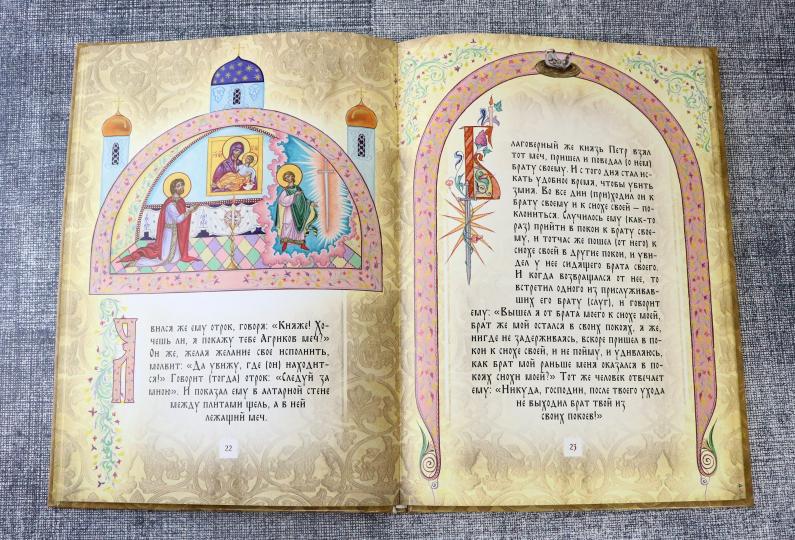 Явился же ему отрок, говоря: «Княже! Хо-
чешь ли, я покажу тебе Агриков меч?»
Он же, желая желание свое исполнить,
молвит: «Да увижу, где (он) находит-
ся!» Говорит (тогда) отрок: «Следуй за
мною». И показал ему в алтарной стене
между плитами щель, а в ней
лежащий меч.
22
Благоверный же князь Петр взял
тот меч, пришел и поведал (о нем)
брату своему. И с того дня стал ис-
кать удобное время, чтобы убить
змия. Во все дни (при)ходил он к
брату своему и к снохе своей – по-
клониться. Случилось ему (как-то
раз) прийти в покои к брату свое-
му, и тотчас же пошел (от него) к
снохе своей в другие покои, и уви-
дел у нее сидящего брата своего.
И когда возвращался от нее, то
встретил одного из прислуживав-
ших его брату (слуг), и говорит
ему: «Вышел я от брата моего к снохе моей,
брат же мой остался в своих покоях, я же,
нигде не задерживаясь, вскоре пришел в по-
кои к снохе своей, и не пойму, и удивляюсь,
как брат мой раньше меня оказался в по-
коях снохи моей?» Тот же человек отвечает
ему: «Никуда, господин, после твоего ухода
не выходил брат твой из
своих покоев!»
23